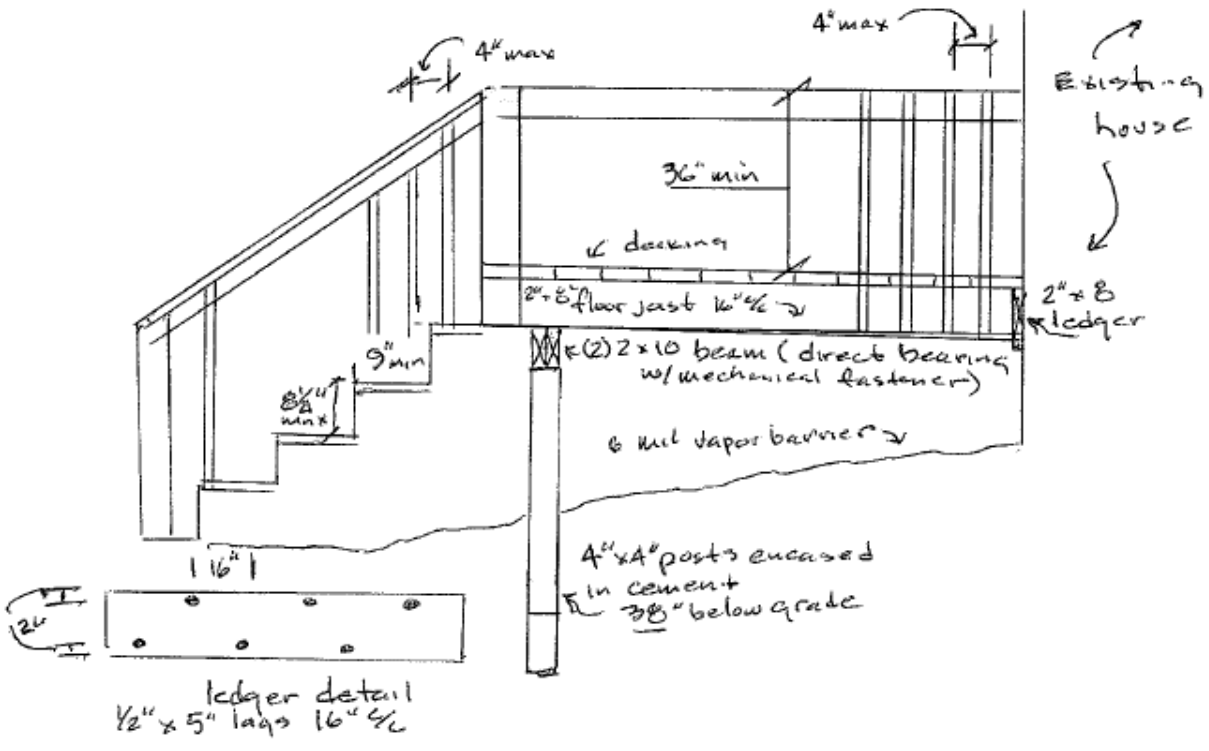 4" max
4" max
Existing
house
36" min
decking
2" x 8" floor jost 16" c/c
2" x 8
ledger
(2) 2 x 10 beam (direct bearing
w/mechanical fastener)
9" min
8 1/4"
max
6 mil vapor barrier
16"
4" x 4" posts encased
in cement
38" below grade
2"
ledger detail
1/2" x 5" lags 16" c/c